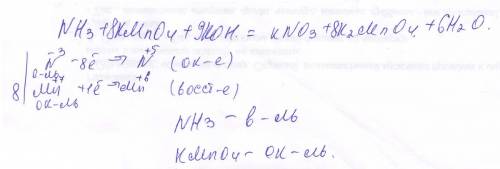 NH3 + 8KMnO4 + 9KOH = KNO3 + 8K2MnO4 + 6H2O.
N -3 -8ē → N +5 (ок-е)
8 | Mn +7 +1ē → Mn +6 (восст-е)
ок-ль
NH3 – в-ль
KMnO4 – ок-ль.